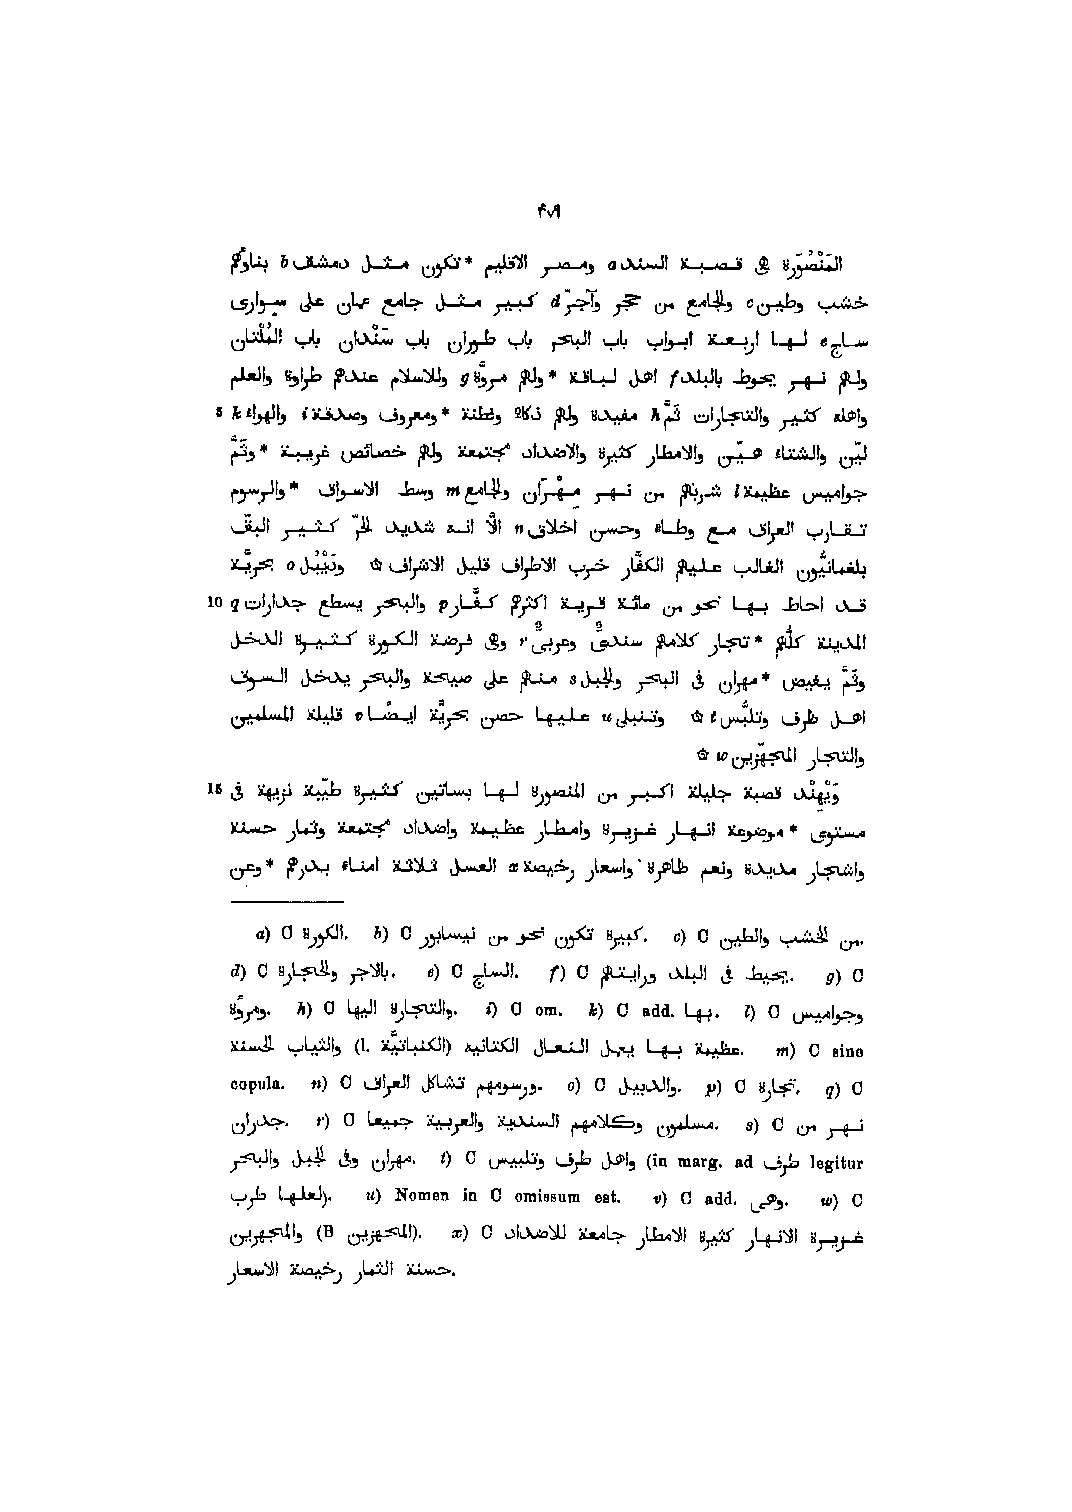 ٤٧٩
المَنْصُورَة هى قصبة السند a ومصر الاقليم *تكون مثل دمشق b بناؤهم
خشب وطين c والجامع من حجر وآجرّ d كبير مثل جامع عمان على سوارى
ساج e لها اربعة ابواب باب البحر باب طوران باب سَنْدان باب المُلْتان
ولهم نهر يحوط بالبلد f اهل لباقة *ولهم مروَّة g وللاسلام عندهم طراوة والعلم
واهله كثير والتجارات ثَمَّ h مفيدة ولهم ذكاء وفطنة *ومعروف وصدقة i والهواء k 5
ليّن والشتاء هيّن والامطار كثيرة والاضداد مجتمعة ولهم خصائص غريبة *وثَمَّ
جواميس عظيمة l شربهم من نهر مِهْرَان والجامع m وسط الاسواق *والرسوم
تقارب العراق مع وطاء وحسن اخلاق n الّا انه شديد الحرّ كثير البقّ
بلغمانيُّون الغالب عليهم الكفّار خرب الاطراف قليل الاشراف ۞ ودَيْبُل o بحريَّة
قد احاط بها نحو من مائة قرية اكثرهم كفَّار p والبحر يسطع جدارات q 10
المدينة كلُّهم *تجار كلامهم سندىٌّ وعربىٌّ r وهى فرضة الكورة كثيرة الدخل
وثَمَّ يغيض *مهران فى البحر والجبل s منهم على صيحة والبحر يدخل السوق
اهل ظرف وتلبُّس t ۞ وتنبلى u عليها حصن بحريَّة ايضًا v قليلة المسلمين
والتجار المجهّزين w ۞
وَيْهِنْد قصبة جليلة اكبر من المنصورة لها بساتين كثيرة طيّبة نزيهة فى 15
مستوى *موضوعة انهار غزيرة وامطار عظيمة واضداد مجتمعة وثمار حسنة
واشجار مديدة ونعم ظاهرة واسعار رخيصة x العسل ثلاثة امناء بدرهم *وعن
a) C الكورة. b) C كبيرة تكون نحو من نيسابور. c) C من الخشب والطين.
d) C بالاجر والحجارة. e) C الساج. f) C يحيط فى البلد ورايتهم. g) C
ومروَّة. h) C والتجارة اليها. i) C om. k) C add. بها. l) C وجواميس
عظيمة بها يعمل النعال الكنانيه (l. الكنباتيَّة) والثياب الحسنة. m) C sine
copula. n) C ورسومهم تشاكل العراق. o) C والديبل. p) C تجارة. q) C
جدران. r) C مسلمون وكلامهم السندية والعربية جميعا. s) C نهر من
مهران وفى الجبل والبحر. t) C واهل طرف وتلبيس (in marg. ad طرف legitur
لعلها طرب). u) Nomen in C omissum est. v) C add. وهى. w) C
والمتجهرين (B المتجهزين). x) C غزيرة الانهار كثيرة الامطار جامعة للاضداد
حسنة الثمار رخيصة الاسعار.